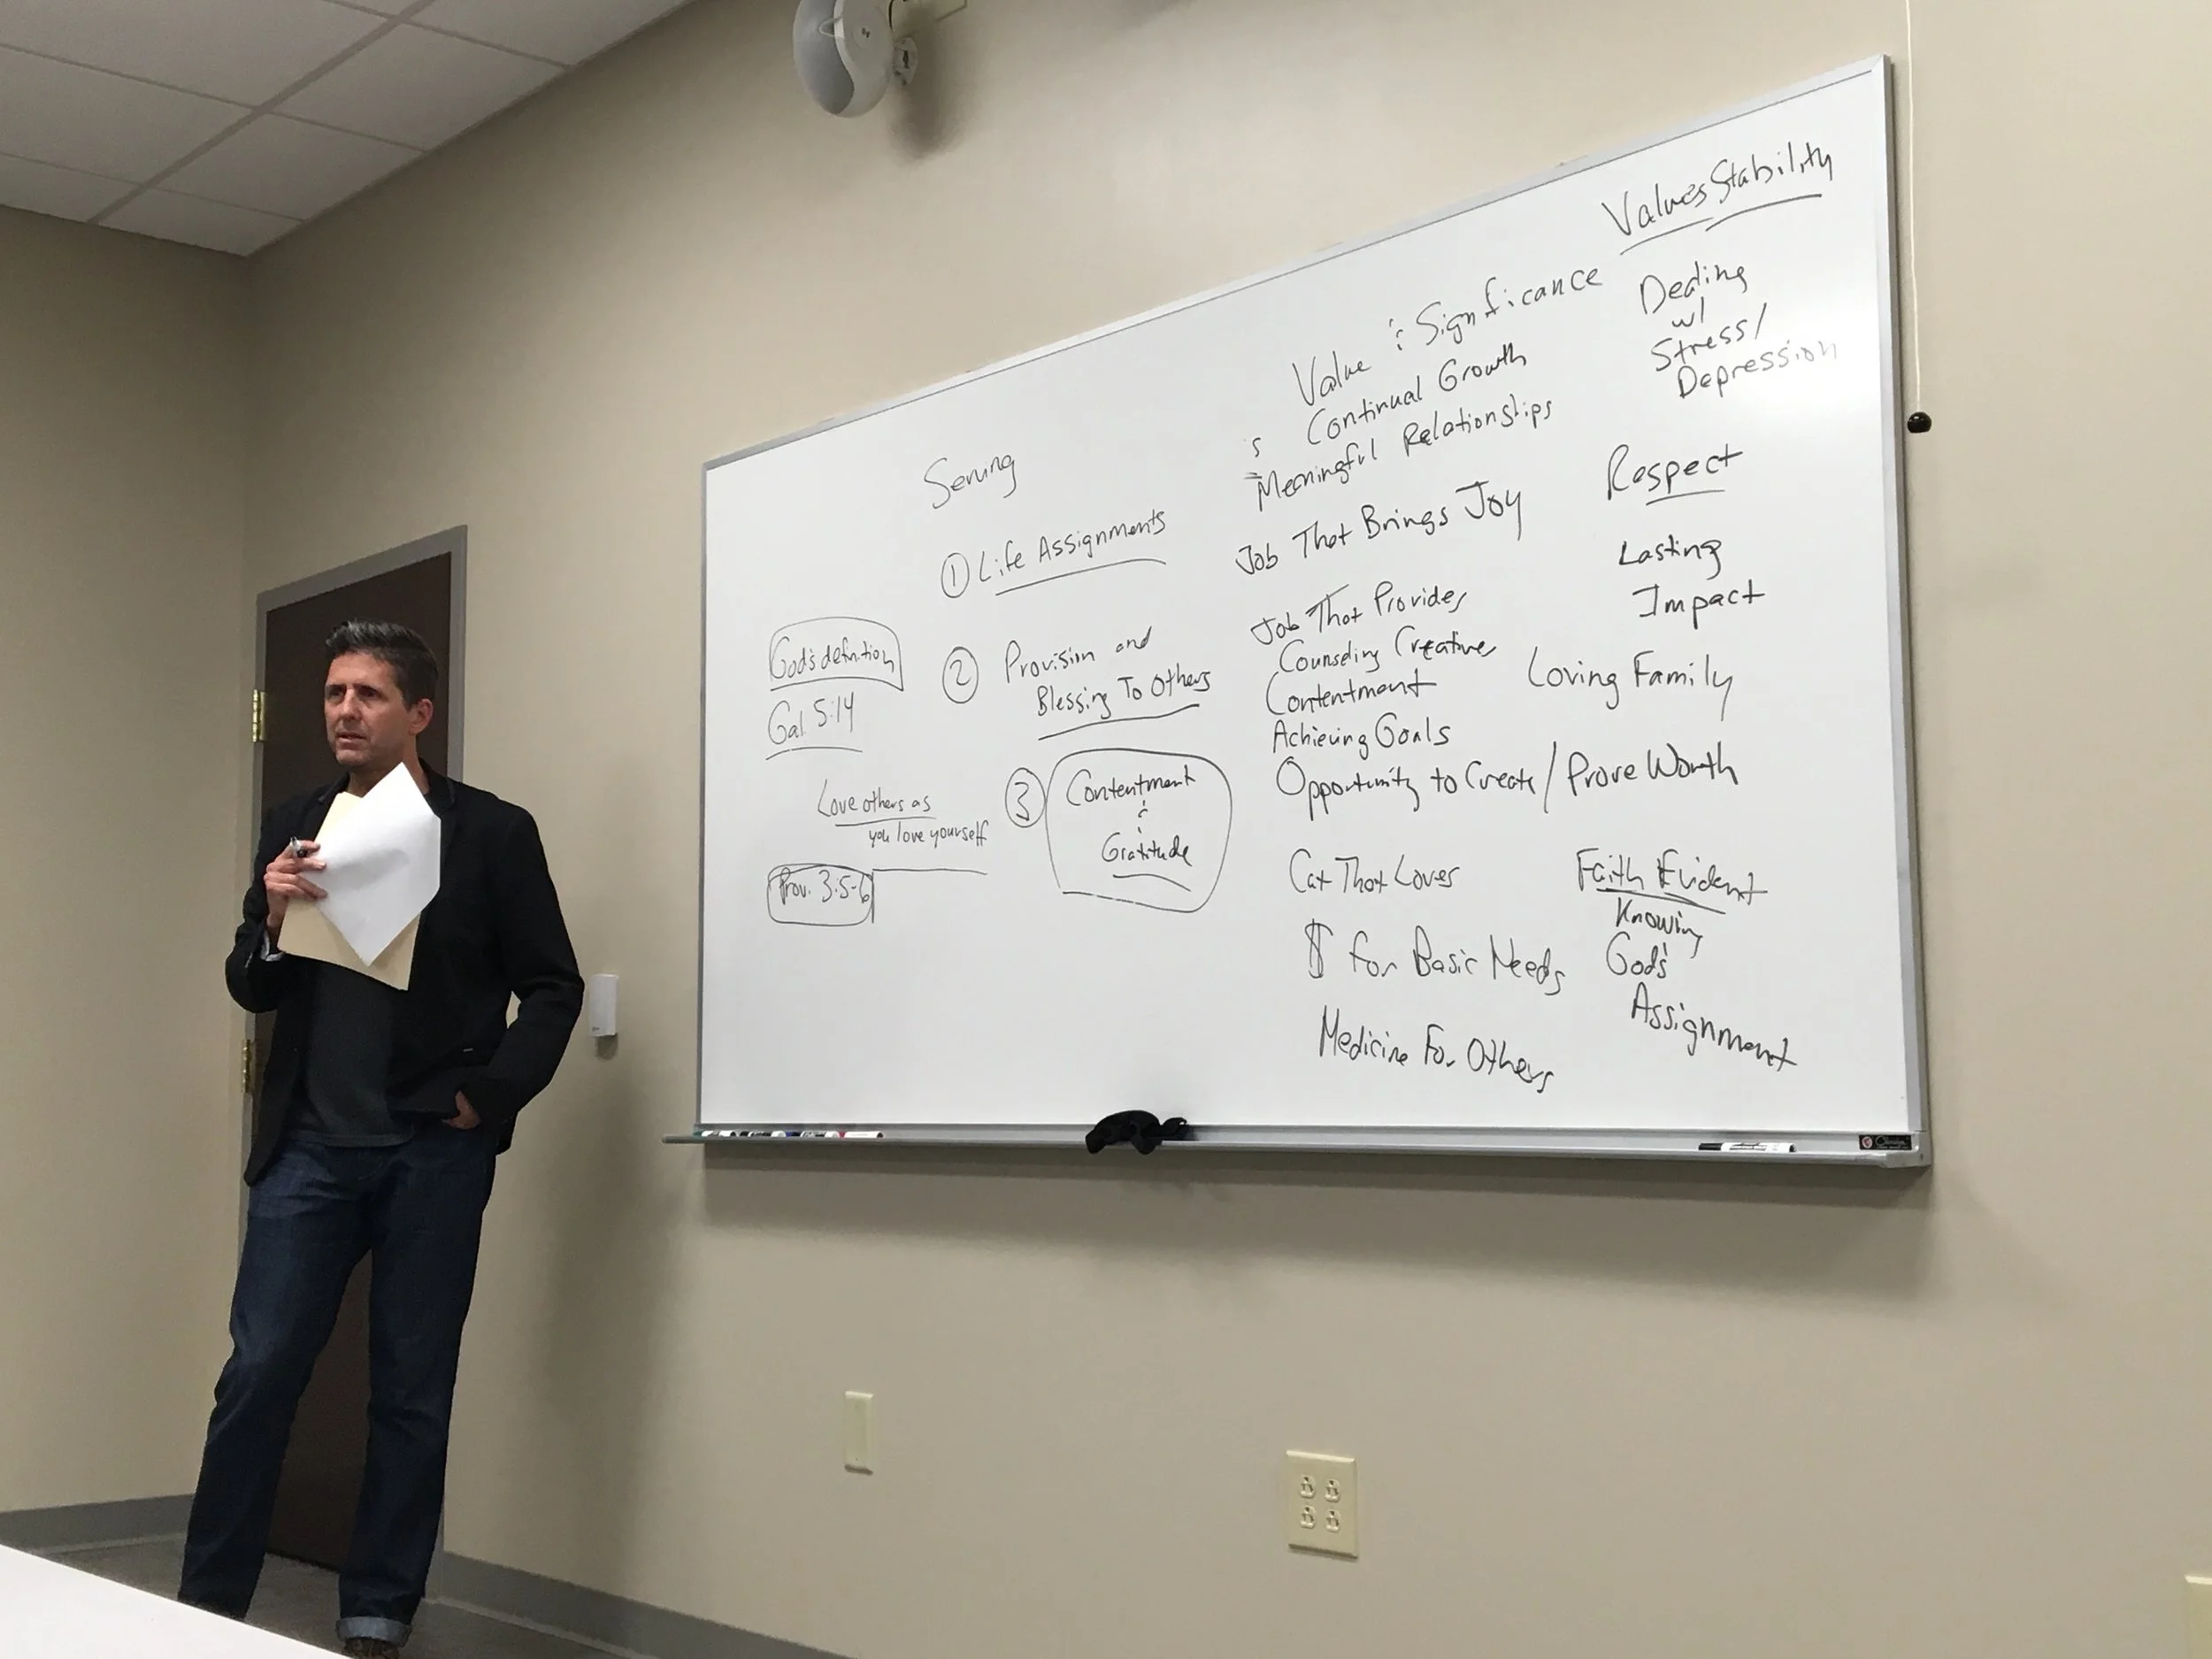 Serving
① Life Assignments
God's definition
Gal. 5:14
② Provision and
Blessing To Others
Love others as
you love yourself
③ Contentment
&
Gratitude
Prov. 3:5-6
Value & Significance
s Continual Growth
Meaningful Relationships
Job That Brings Joy
Job That Provides
Counseling Creative
Contentment
Achieving Goals
Opportunity to Create / Prove Worth
Cat That Loves
$ For Basic Needs
Medicine For Others
Values Stability
Dealing
w/
Stress/
Depression
Respect
Lasting
Impact
Loving Family
Faith Evident
Knowing
God's
Assignment